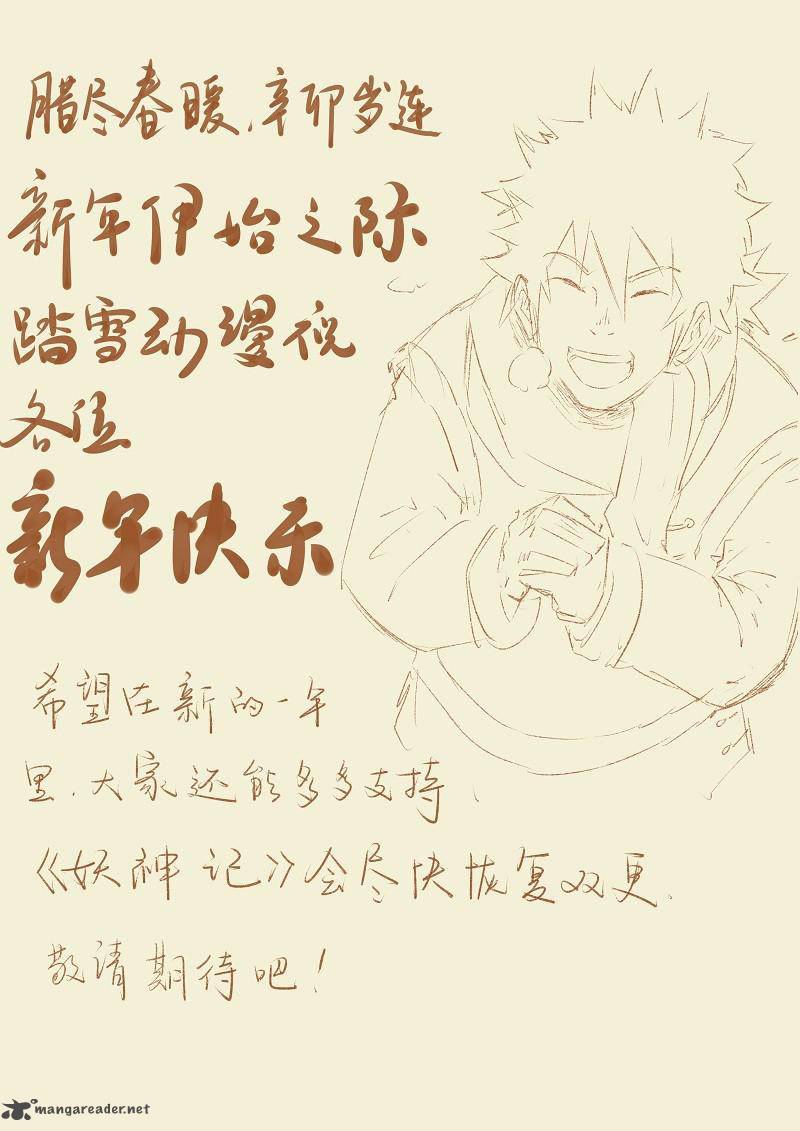 腊尽春暖,辛卯岁连
新年伊始之际
踏雪动漫祝
各位
新年快乐
希望在新的一年
里.大家还能多多支持
《妖神记》会尽快恢复双更.
敬请期待吧!
mangareader.net